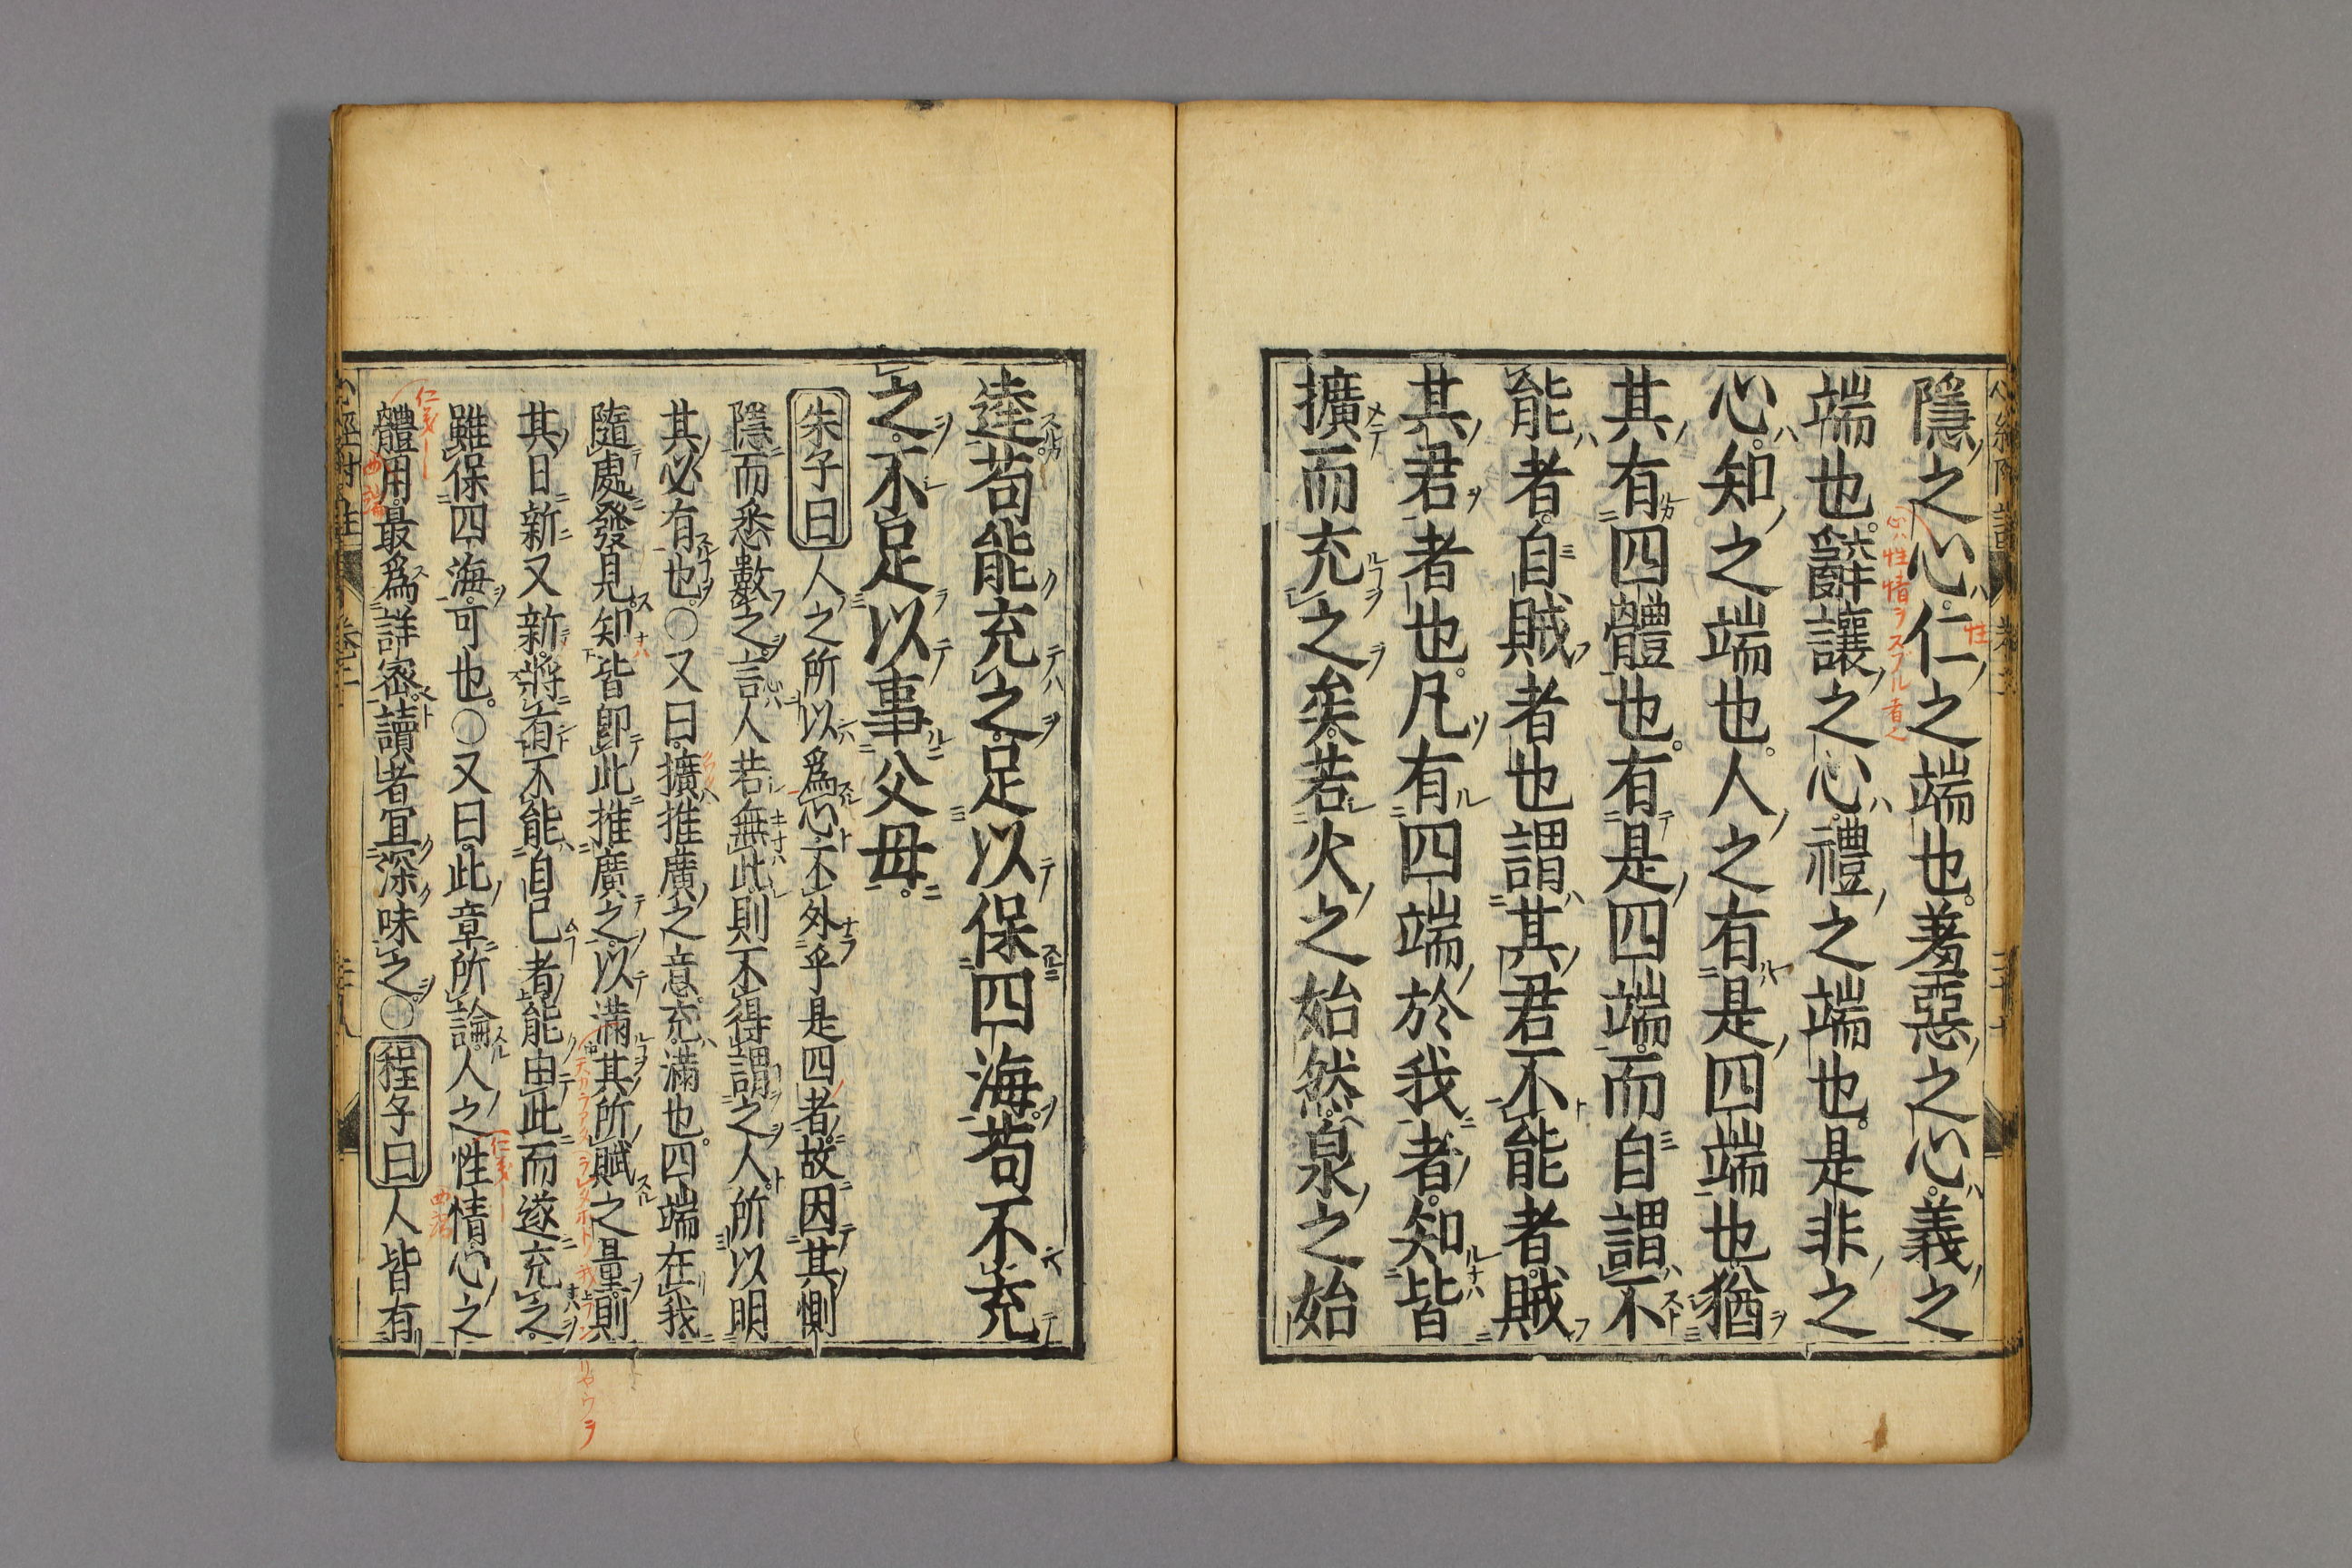 隱之心仁之端也羞惡之心義之
端也辭讓之心禮之端也是非之
心知之端也人之有是四端也猶
其有四體也有是四端而自謂不
能者自賊者也謂其君不能者賊
其君者也凡有四端於我者知皆
擴而充之矣若火之始然泉之始
逹苟能充之足以保四海苟不充
之不足以事父母
朱子曰人之所以爲心不外乎是四者故因其惻
隱而悉數之言人若無此則不得謂之人所以明
其必有也○又曰擴推廣之意充滿也四端在我
隨處發見知皆卽此推廣之以滿其所賦之量則
其日新又新將有不能自已者能由此而遂充之
雖保四海可也○又曰此章所論人之性情心之
體用最爲詳宻讀者宜深味之○程子曰人皆有